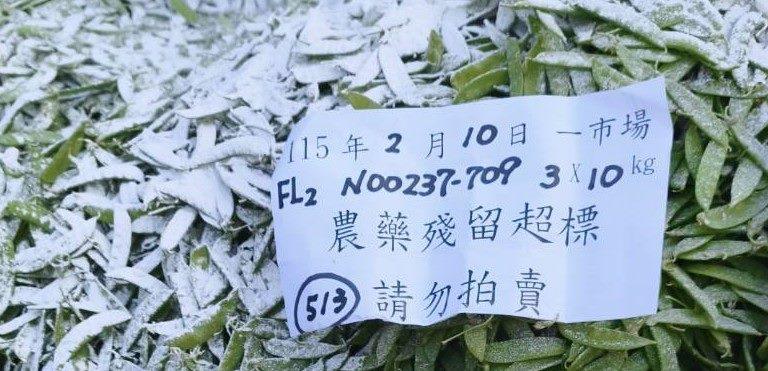 115年2月10日 一市場
FL2 N00237-709 3X10kg
農藥殘留超標
513 請勿拍賣